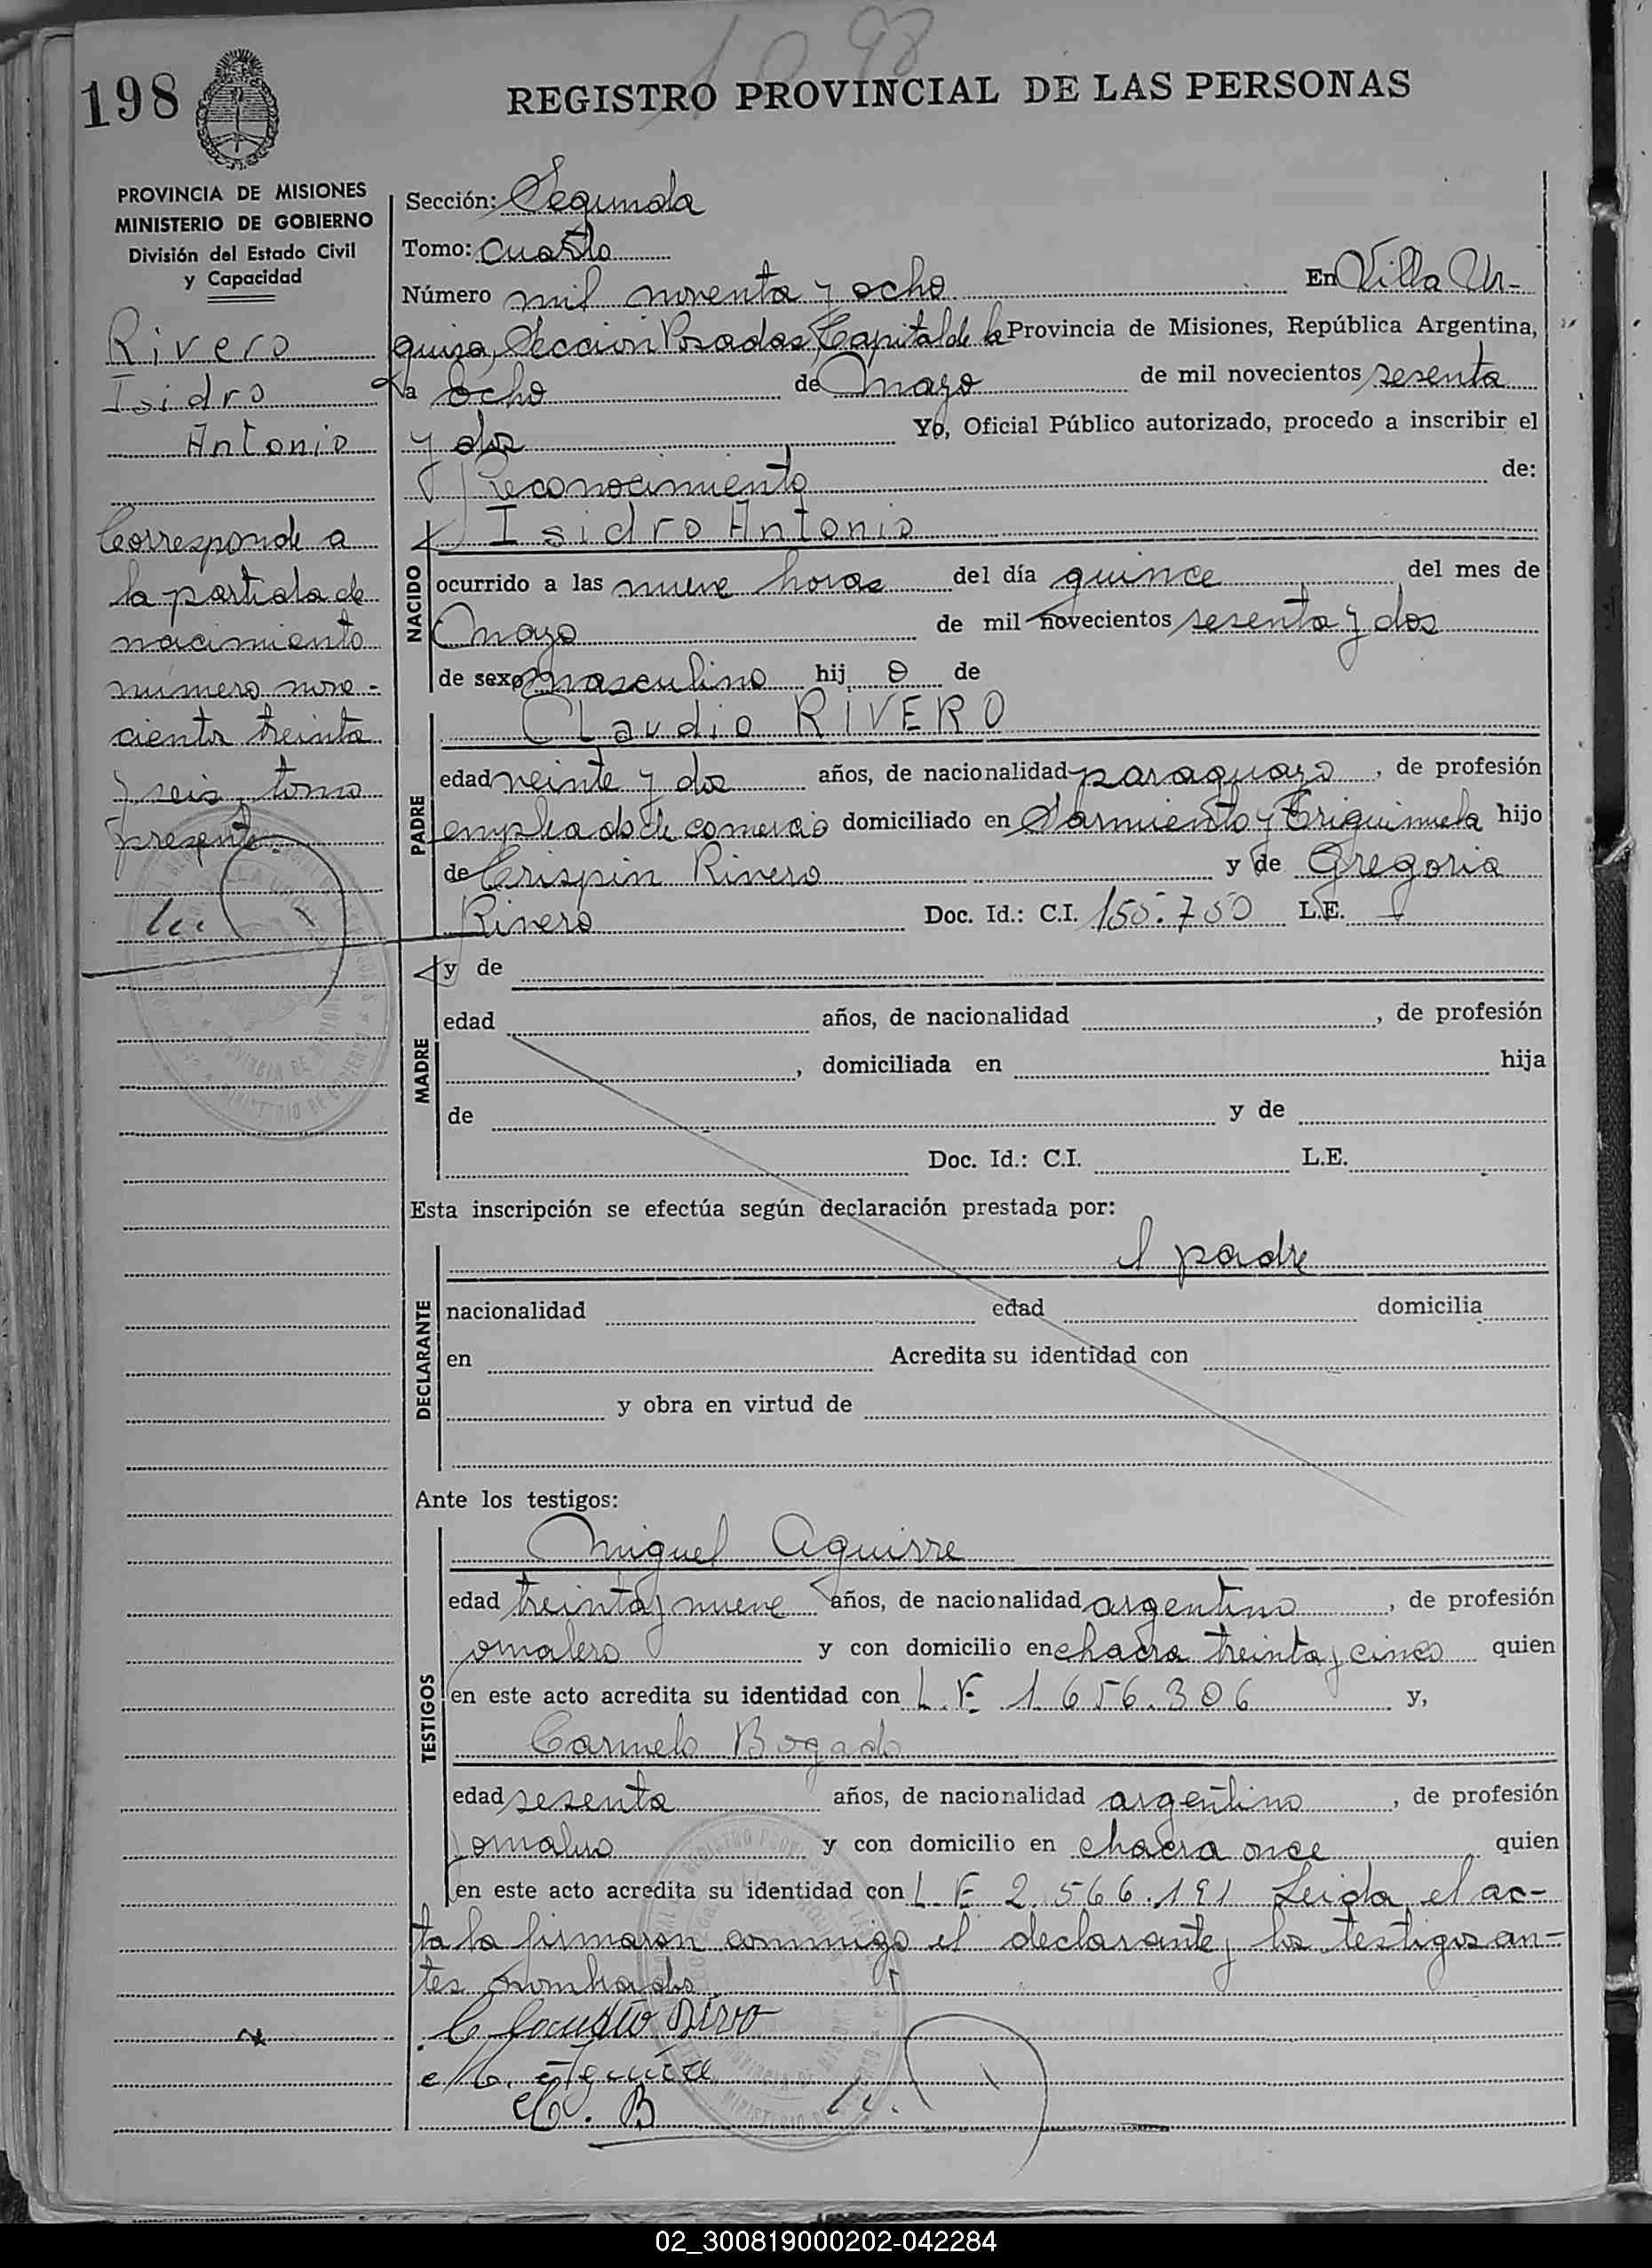 1098
198
REGISTRO PROVINCIAL DE LAS PERSONAS
PROVINCIA DE MISIONES
MINISTERIO DE GOBIERNO
División del Estado Civil
y Capacidad
Rivero
Isidro
Antonio
Corresponde a
la partida de
nacimiento
número nove-
cientos treinta
y seis, tomo
presente.
Sección: Segunda
Tomo: cuarto
Número mil noventa y ocho En Villa Ur-
quiza, Sección Posadas, Capital de la Provincia de Misiones, República Argentina,
a ocho de mayo de mil novecientos sesenta
y dos Yo, Oficial Público autorizado, procedo a inscribir el
Reconocimiento de:
Isidro Antonio
NACIDO
ocurrido a las nueve horas del día quince del mes de
mayo de mil novecientos sesenta y dos
de sexo masculino hij o de
Claudio RIVERO
PADRE
edad veinte y dos años, de nacionalidad paraguayo, de profesión
empleado de comercio domiciliado en Sarmiento y hijo
de Crispin Rivero y de Gregoria
Rivero Doc. Id.: C.I. 155.750 L.E.
MADRE
y de
edad años, de nacionalidad , de profesión
, domiciliada en hija
de y de
Doc. Id.: C.I. L.E.
Esta inscripción se efectúa según declaración prestada por:
el padre
DECLARANTE
nacionalidad edad domicilia
en Acredita su identidad con
y obra en virtud de
Ante los testigos:
TESTIGOS
Miguel Aguirre
edad treinta y nueve años, de nacionalidad argentino, de profesión
jornalero y con domicilio en chacra treinta y cinco quien
en este acto acredita su identidad con L.E 1.656.306 y,
Carmelo Bogado
edad sesenta años, de nacionalidad argentino, de profesión
jornalero y con domicilio en chacra once quien
en este acto acredita su identidad con L.E 2.566.191 Leida el ac-
ta la firmaron conmigo el declarante y los testigos an-
tes nombrados
C. B
02_300819000202-042284